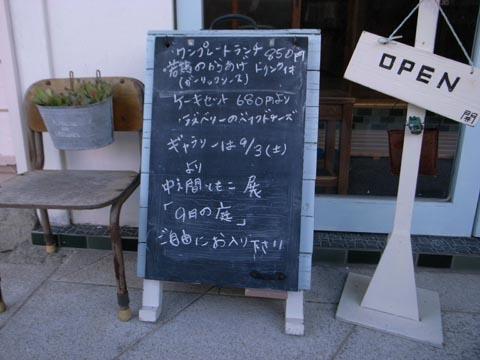 ワンプレートランチ 850円
・若鶏のからあげ ドリンク付
(ガーリックソース)
ケーキセット 680円より
・ラズベリーのベイクドチーズ
ギャラリーは9/3(土)
より
中間 展
「9月の庭」
ご自由にお入り下さい
OPEN
開